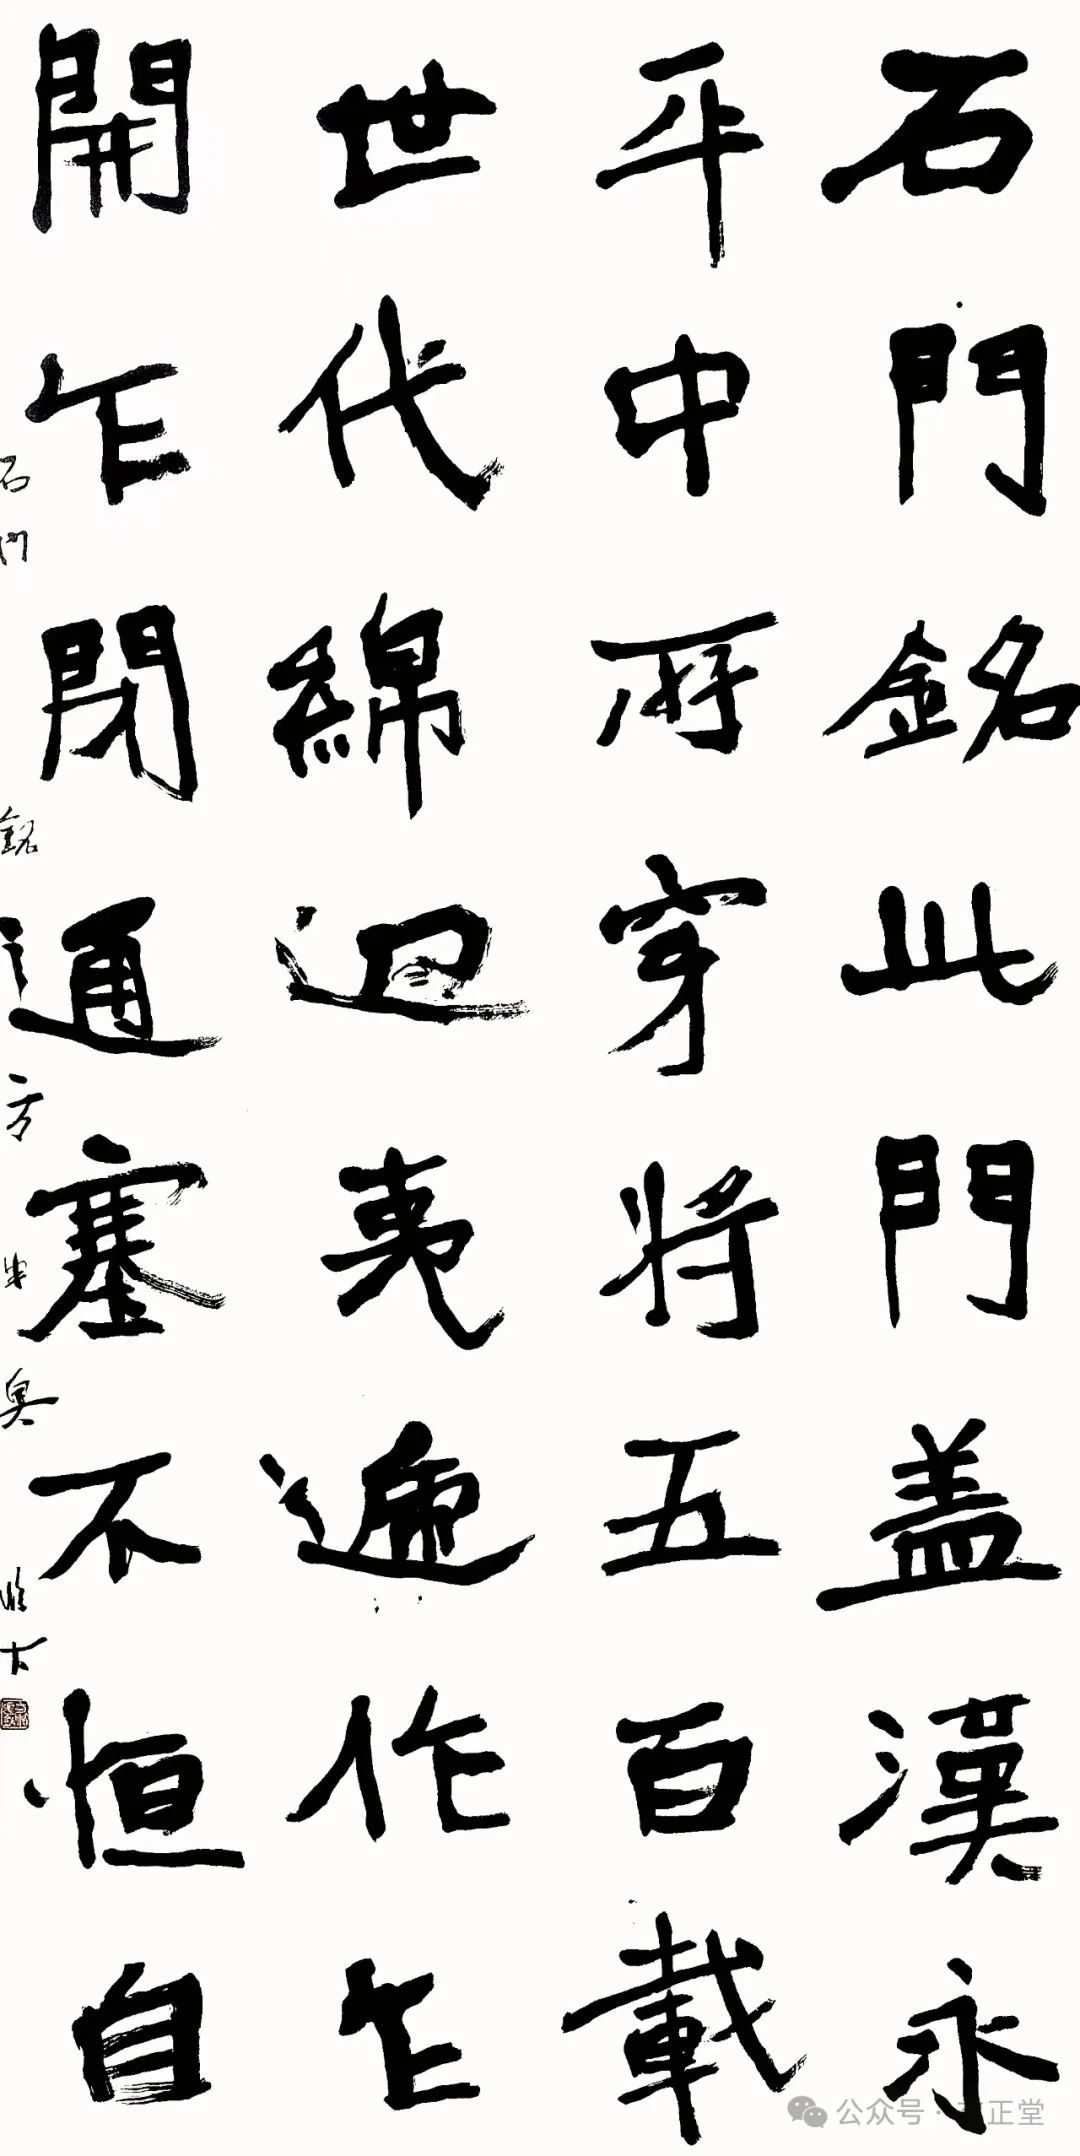 石門銘此門盖漢永
平中所穿將五百載
世代綿迴夷遞作乍
開乍閉通塞不恒自
石门銘
公众号·正堂